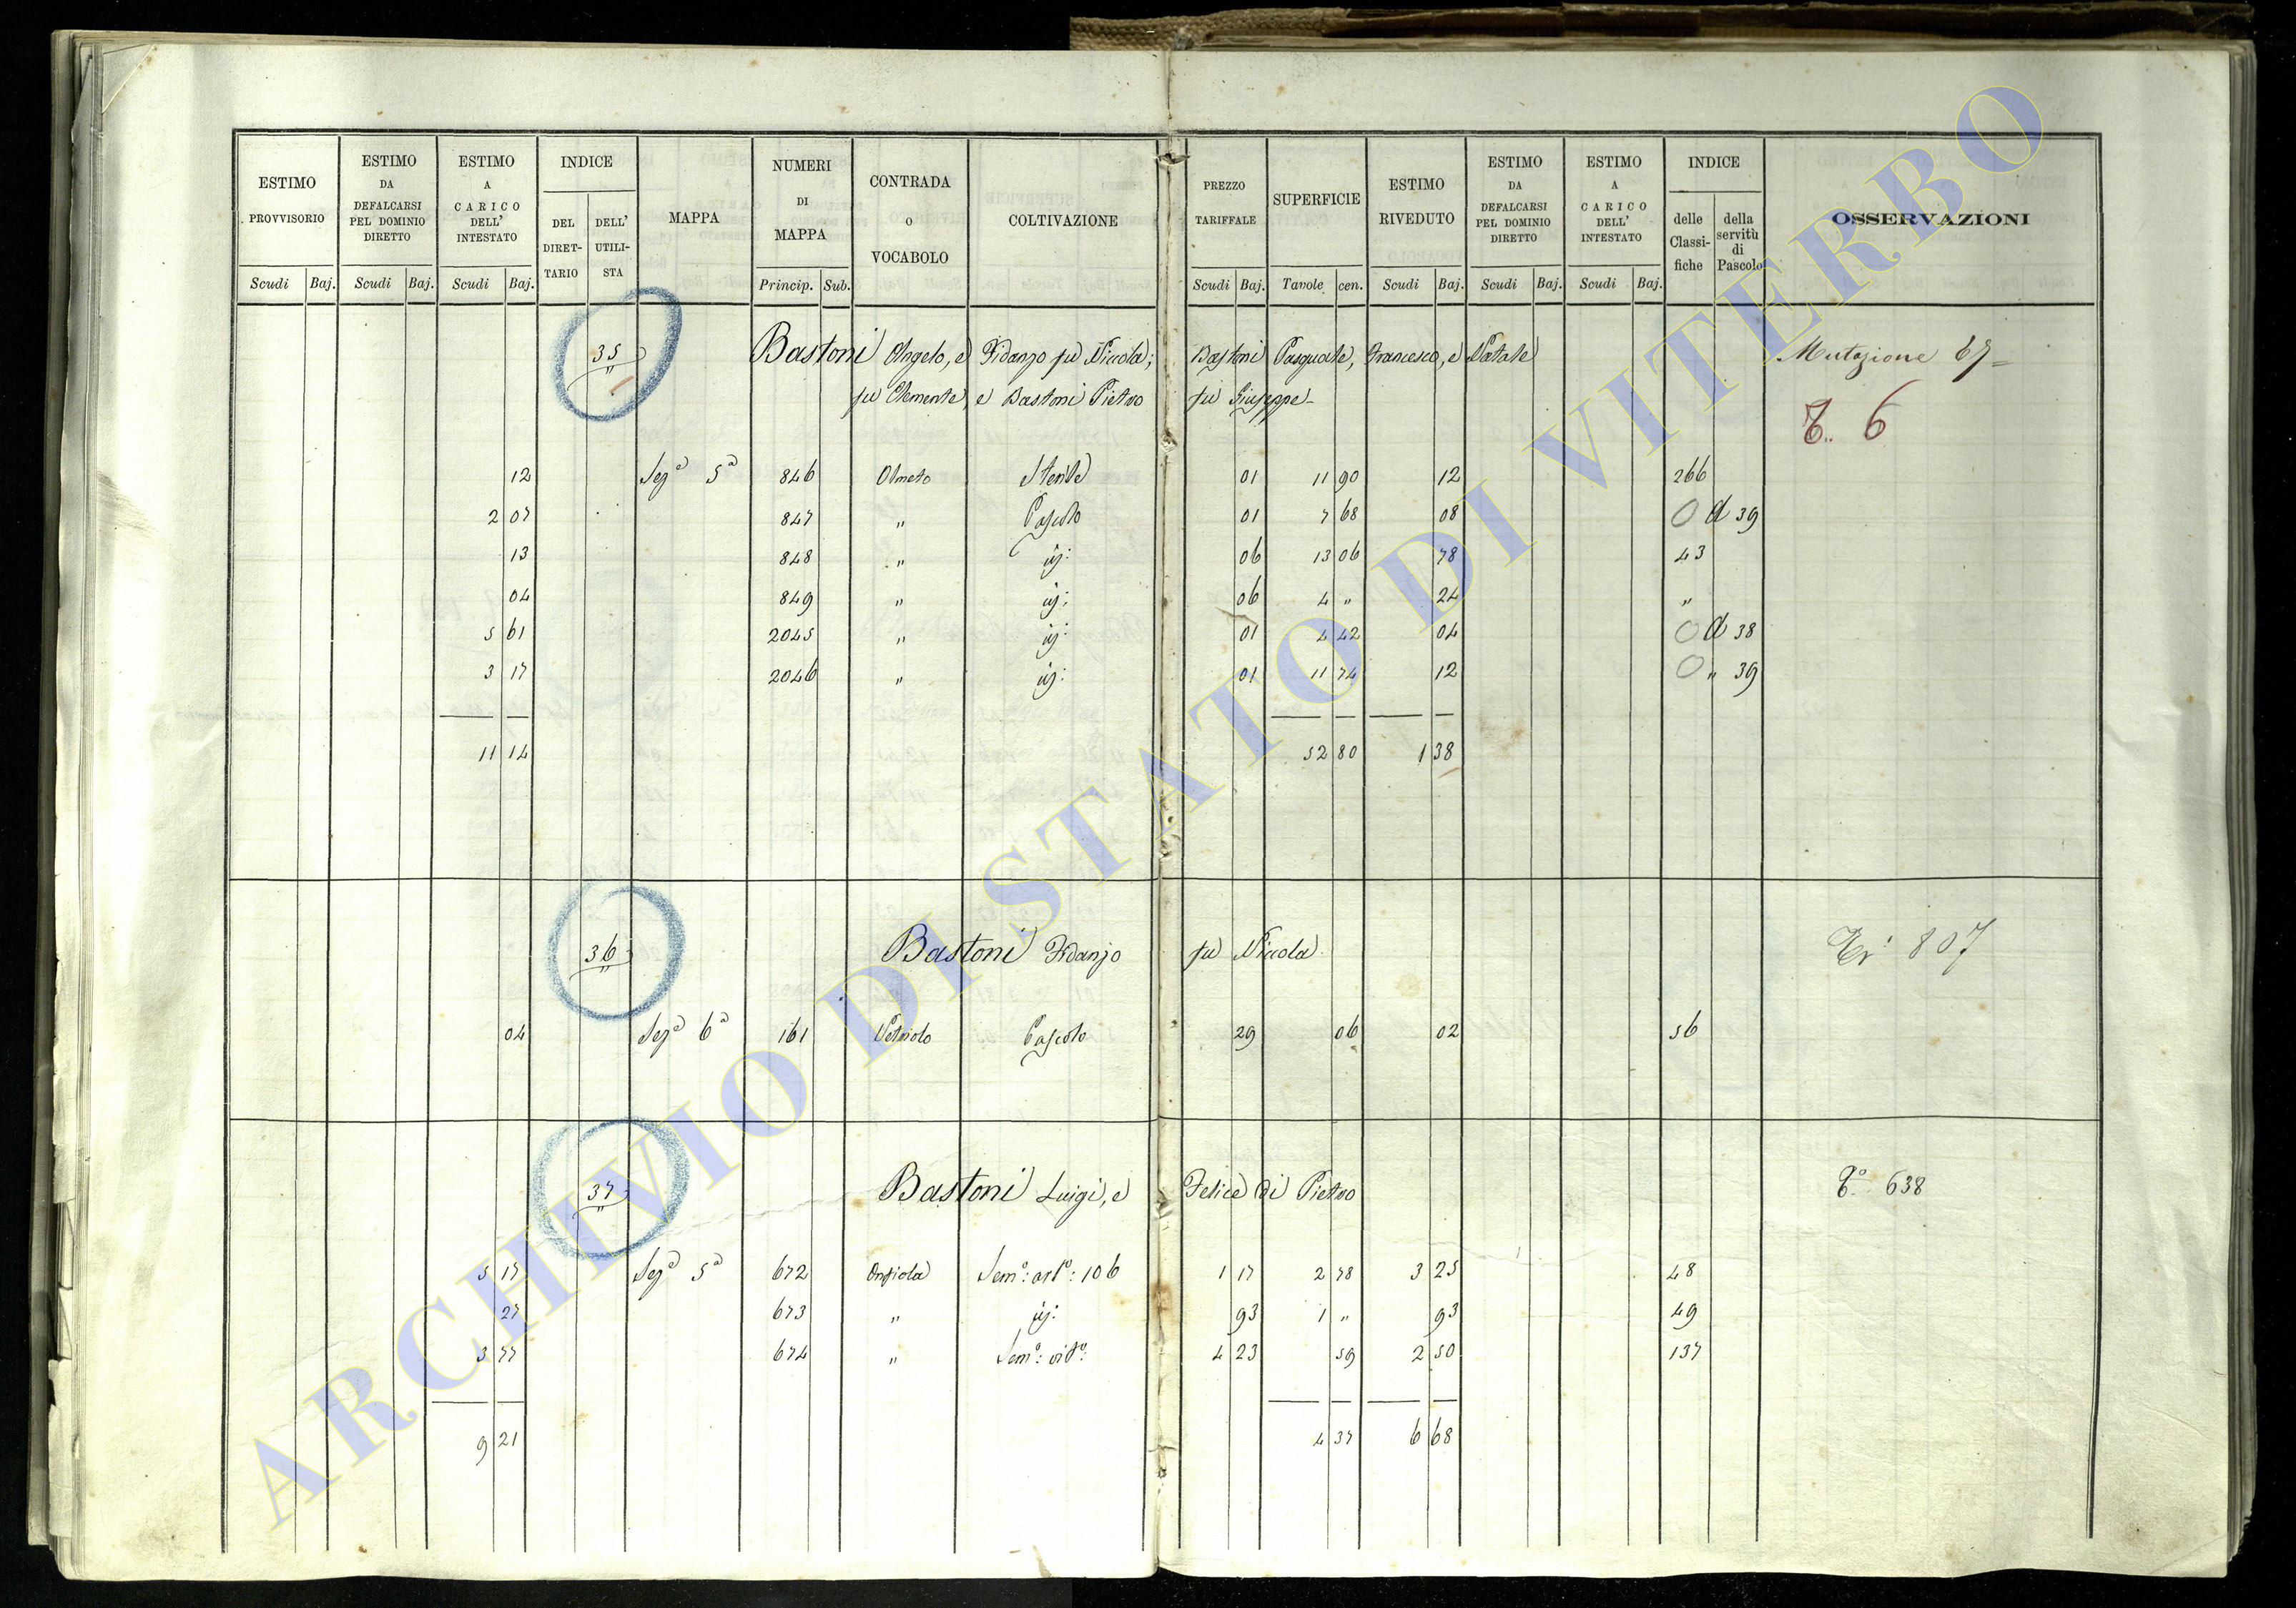 ESTIMO PROVVISORIO
ESTIMO DA DEFALCARSI PEL DOMINIO DIRETTO
ESTIMO A CARICO DELL' INTESTATO
INDICE
DEL DIRET-TARIO
DELL' UTILI-STA
MAPPA
NUMERI DI MAPPA
CONTRADA O VOCABOLO
COLTIVAZIONE
PREZZO TARIFFALE
SUPERFICIE
ESTIMO RIVEDUTO
ESTIMO DA DEFALCARSI PEL DOMINIO DIRETTO
ESTIMO A CARICO DELL' INTESTATO
INDICE
delle Classi-fiche
della servitù di Pascolo
OSSERVAZIONI
Scudi Baj. Scudi Baj. Scudi Baj. Princip. Sub. Scudi Baj. Tavole cen. Scudi Baj. Scudi Baj. Scudi Baj.
35 Bastoni Angelo, e Fidanzo fu Niccola; Bastoni Pasquale, Francesco, e Natale Mutazione 67
fu Clemente, e Bastoni Pietro fu Giuseppe
T. 6
12 Sezª 5ª 846 Olmeto Sterile 01 11 90 12 266
2 07 847 " Pascolo 01 7 68 08 0 d 39
13 848 " id: 06 13 06 78 43
04 849 " id: 06 4 " 24 "
5 61 2045 " id: 01 4 42 04 0 d 38
3 17 2046 " id: 01 11 74 12 0 " 39
11 14 52 80 1 38
36 Bastoni Fidanzo fu Niccola 807
04 Sezª 6ª 161 Pascolo 29 06 02 56
37 Bastoni Luigi, e Felice di Pietro Tº 638
5 17 Sezª 5ª 672 Semº: artº: 106 1 17 2 78 3 25 48
27 673 " id: 93 1 " 93 49
3 77 674 " Semº: vitº: 4 23 59 2 50 137
9 21 4 37 6 68
ARCHIVIO DI STATO DI VITERBO